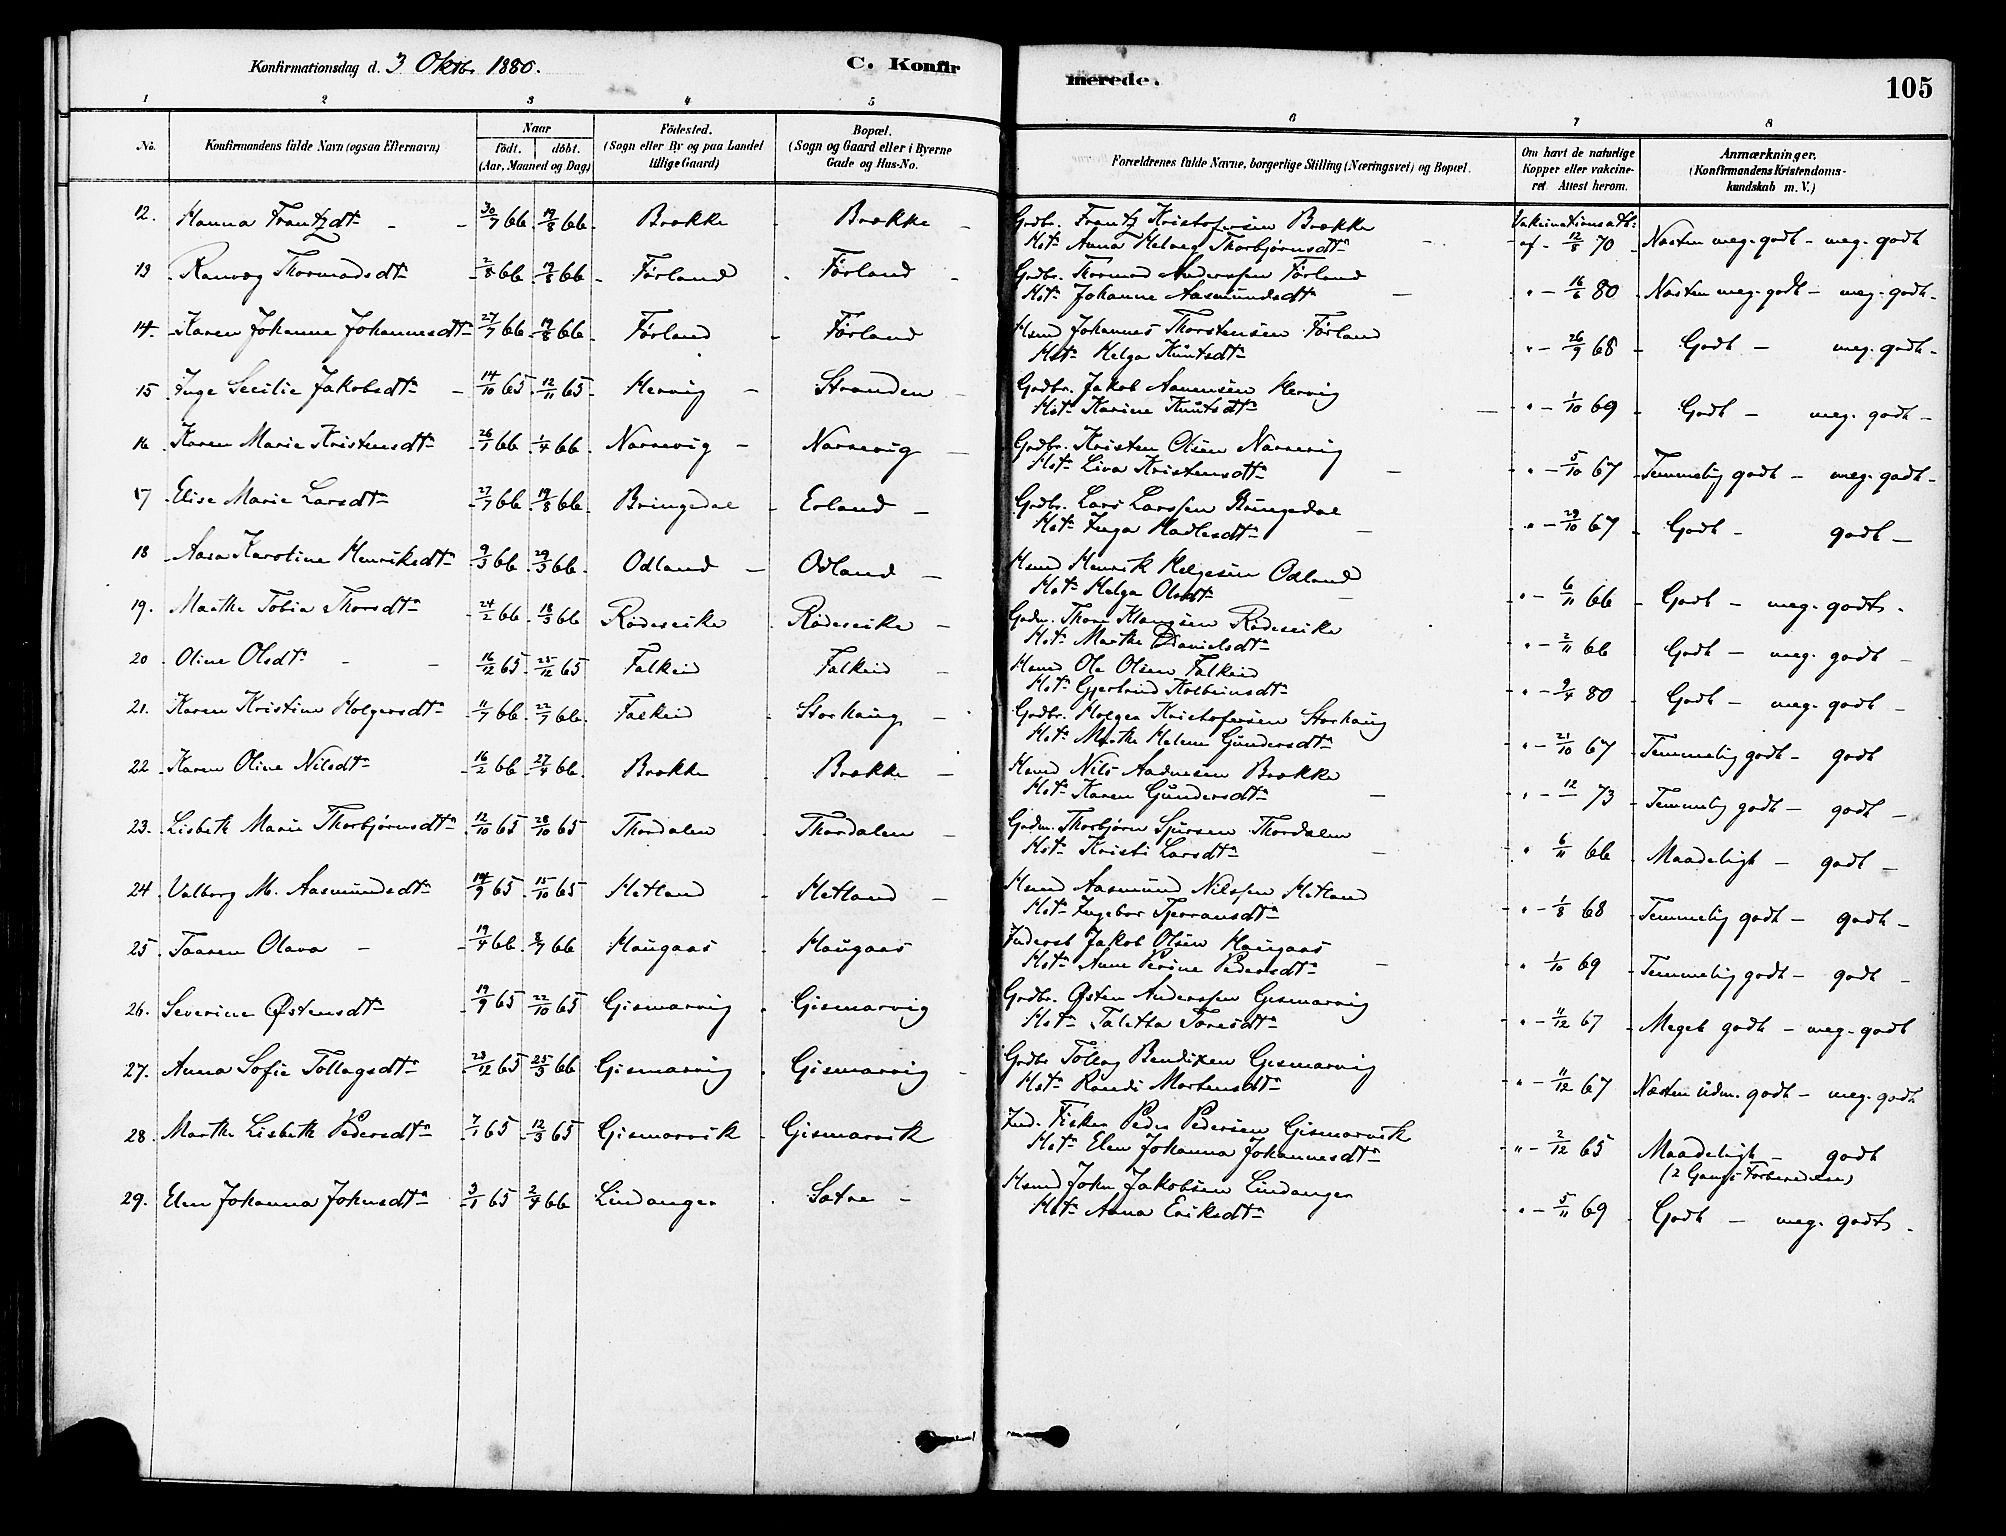 Konfirmationsdag d. 3 Oktbr. 1880. C. Konfirmerede. 105
1 2 3 4 5 6 7 8
No. Konfirmandens fulde Navn (ogsaa Efternavn) Naar födt. döbt. (Aar, Maaned og Dag) Födested. (Sogn eller By og paa Landet tillige Gaard) Bopæl. (Sogn og Gaard eller i Byerne Gade og Hus-No. Forældrenes fulde Navne, borgerlige Stilling (Næringsvei) og Bopæl. Om havt de naturlige Kopper eller vakcineret. Attest herom. Anmærkninger. (Konfirmandens Kristendomskundskab m. V.)
12. Hanna Frantzdtr - - 30/7 66 19/8 66 Brække Brække - Grdbr. Frantz Kristofersen Brække Vakcinationsatt:
Hst: Anna Helveg Thorbjørnsdtr - af - 12/8 70 Næsten meg. godt - meg. godt
13 Ranvæg Thormodsdtr 2/8 66 19/8 66 Førland Førland - Grdbr. Thormod Anderssen Førland
Hst: Johanne Aasmundsdtr - " - 16/6 80 Næsten meg. godt - meg. godt -
14. Karen Johanne Johannesdtr 27/7 66 19/8 66 Førland Førland Hsmd Johannes Thorstensen Førland
Hst: Helga Knutsdtr " - 26/9 68 Godt - meg. godt -
15 Inge Secilie Jakobsdtr - 14/10 65 12/11 65 Hervig - Stranden Grdbr. Jakob Aanensen Hervig
Hst: Karine Knutsdtr - " - 1/10 69 Godt - meg. godt -
16 Karen Marie Kristensdtr 26/1 66 1/4 66 Narrevig - Narrevig - Grdbr. Kristen Olsen Narrevig
Hst: Liva Kristensdtr - " - 5/10 67 Temmelig godt - meg. godt -
17 Elise Marie Larsdtr 27/7 66 19/8 66 Bringedal - Erland - Grdbr. Lars Larssen Bringedal
Hst: Inga Hadlesdtr - " - 29/10 67 Godt - godt -
18 Aasa Karoline Henriksdtr 9/3 66 29/3 66 Odland - Odland - Hsmd Henrik Helgesen Odland
Hst: Helga Olsdtr - " - 6/11 66 Godt - meg. godt.
19. Marthe Tobia Thorsdtr 24/2 66 18/3 66 Rødeseike Rødeseike - Grdm. Thor Klausen Rødeseike
Hst: Marthe Danielsdtr " - 2/11 66 Godt - meg. godt -
20 Oline Olsdtr - - 16/12 65 25/12 65 Falkeid Falkeid - Hsmd Ole Olsen Falkeid
Hst: Gjertrud Kolbeinsdtr " - 9/4 80 Godt - meg. godt -
21. Karen Kristine Holgersdtr 11/7 66 22/7 66 Falkeid Storhaug - Grdbr. Holger Kristofersen Storhaug
Hst: Marthe Helene Gundersdtr " - 21/10 67 Temmelig godt - godt
22 Karen Oline Nilsdtr 16/2 66 27/4 66 Brække Brække - Hsmd Nils Aadnesen Brække
Hst: Karen Gundersdtr - " - 12 73 Temmelig godt - godt -
23. Lisbeth Marie Thorbjørnsdtr 12/10 65 28/10 65 Thordalen Thordalen - Grdm. Thorbjørn Sjursen Thordalen
Hst: Kristi Larsdtr - " 6/11 66 Maadeligt - godt -
24 Valborg M. Aasmundsdtr 14/9 65 15/10 65 Hetland Hetland - Hsmd Aasmund Nilssen Hetland
Hst: Ingebor Tjerransdtr " - 1/8 68 Temmelig godt - godt -
25 Taaren Olava - 19/4 66 8/7 66 Haugaas Haugaas Inderst Jakob Olsen Haugaas
Hst: Anne Perine Pedersdtr - " 1/10 69 Temmelig godt - godt -
26. Severine Østensdtr 19/9 65 22/10 65 Gismarvig Gismarvig Grdbr. Østen Anderssen Gismarvig
Hst: Taletta Toresdtr " - 11/12 67 Meget godt - meg. godt
27. Anna Sofie Tollagsdtr 23/12 65 25/3 66 Gismarvig Gismarvig - Grdbr Tollag Bendixen Gismarvig
Hst: Randi Mortensdtr " - 11/12 67 Næsten udm. godt - meg. godt
28. Marthe Lisbeth Pedersdtr 7/1 65 12/3 65 Gismarvik Gismarvik Ind. Fisker Peder Pedersen Gismarvik
Hst: Elen Johanna Johannesdtr " - 2/12 65 Maadeligt - godt
(2 Gangs Forberedelse)
29. Elen Johanna Johnsdtr 3/1 65 2/4 66 Lindanger Sætre - Hsmd John Jakobsen Lindanger
Hst: Anna Eriksdtr " - 5/11 69 Godt - meg. godt.